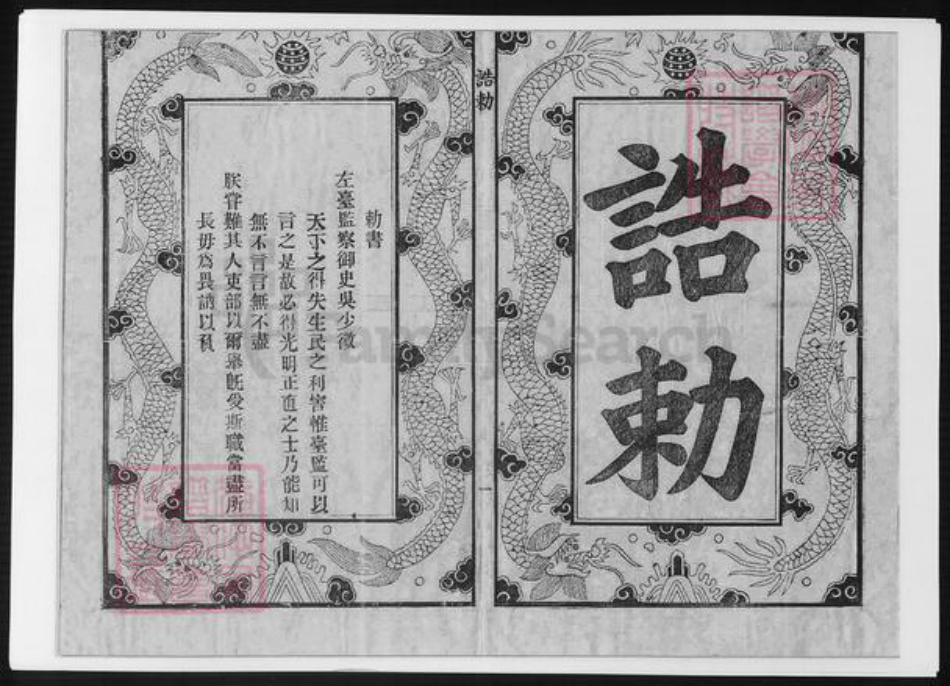 誥
勅
誥勅
一
勅書
左臺監察御史吳少微
天下之得失生民之利害惟臺監可以
言之是故必得光明正直之士乃能知
無不言言無不盡
朕甞難其人吏部以爾舉旣受斯職當盡所
長毋為畏訥以負
FamilySearch